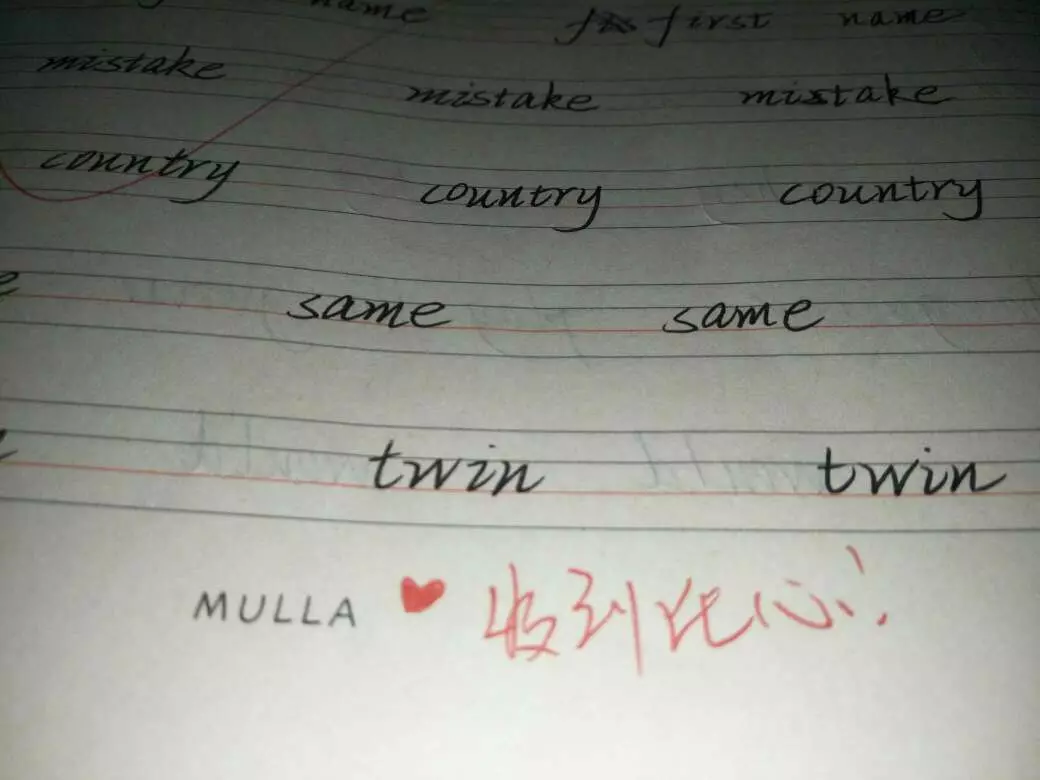 name first name
mistake mistake mistake
country country country
same same
twin twin
MULLA ♥ 收到比心!